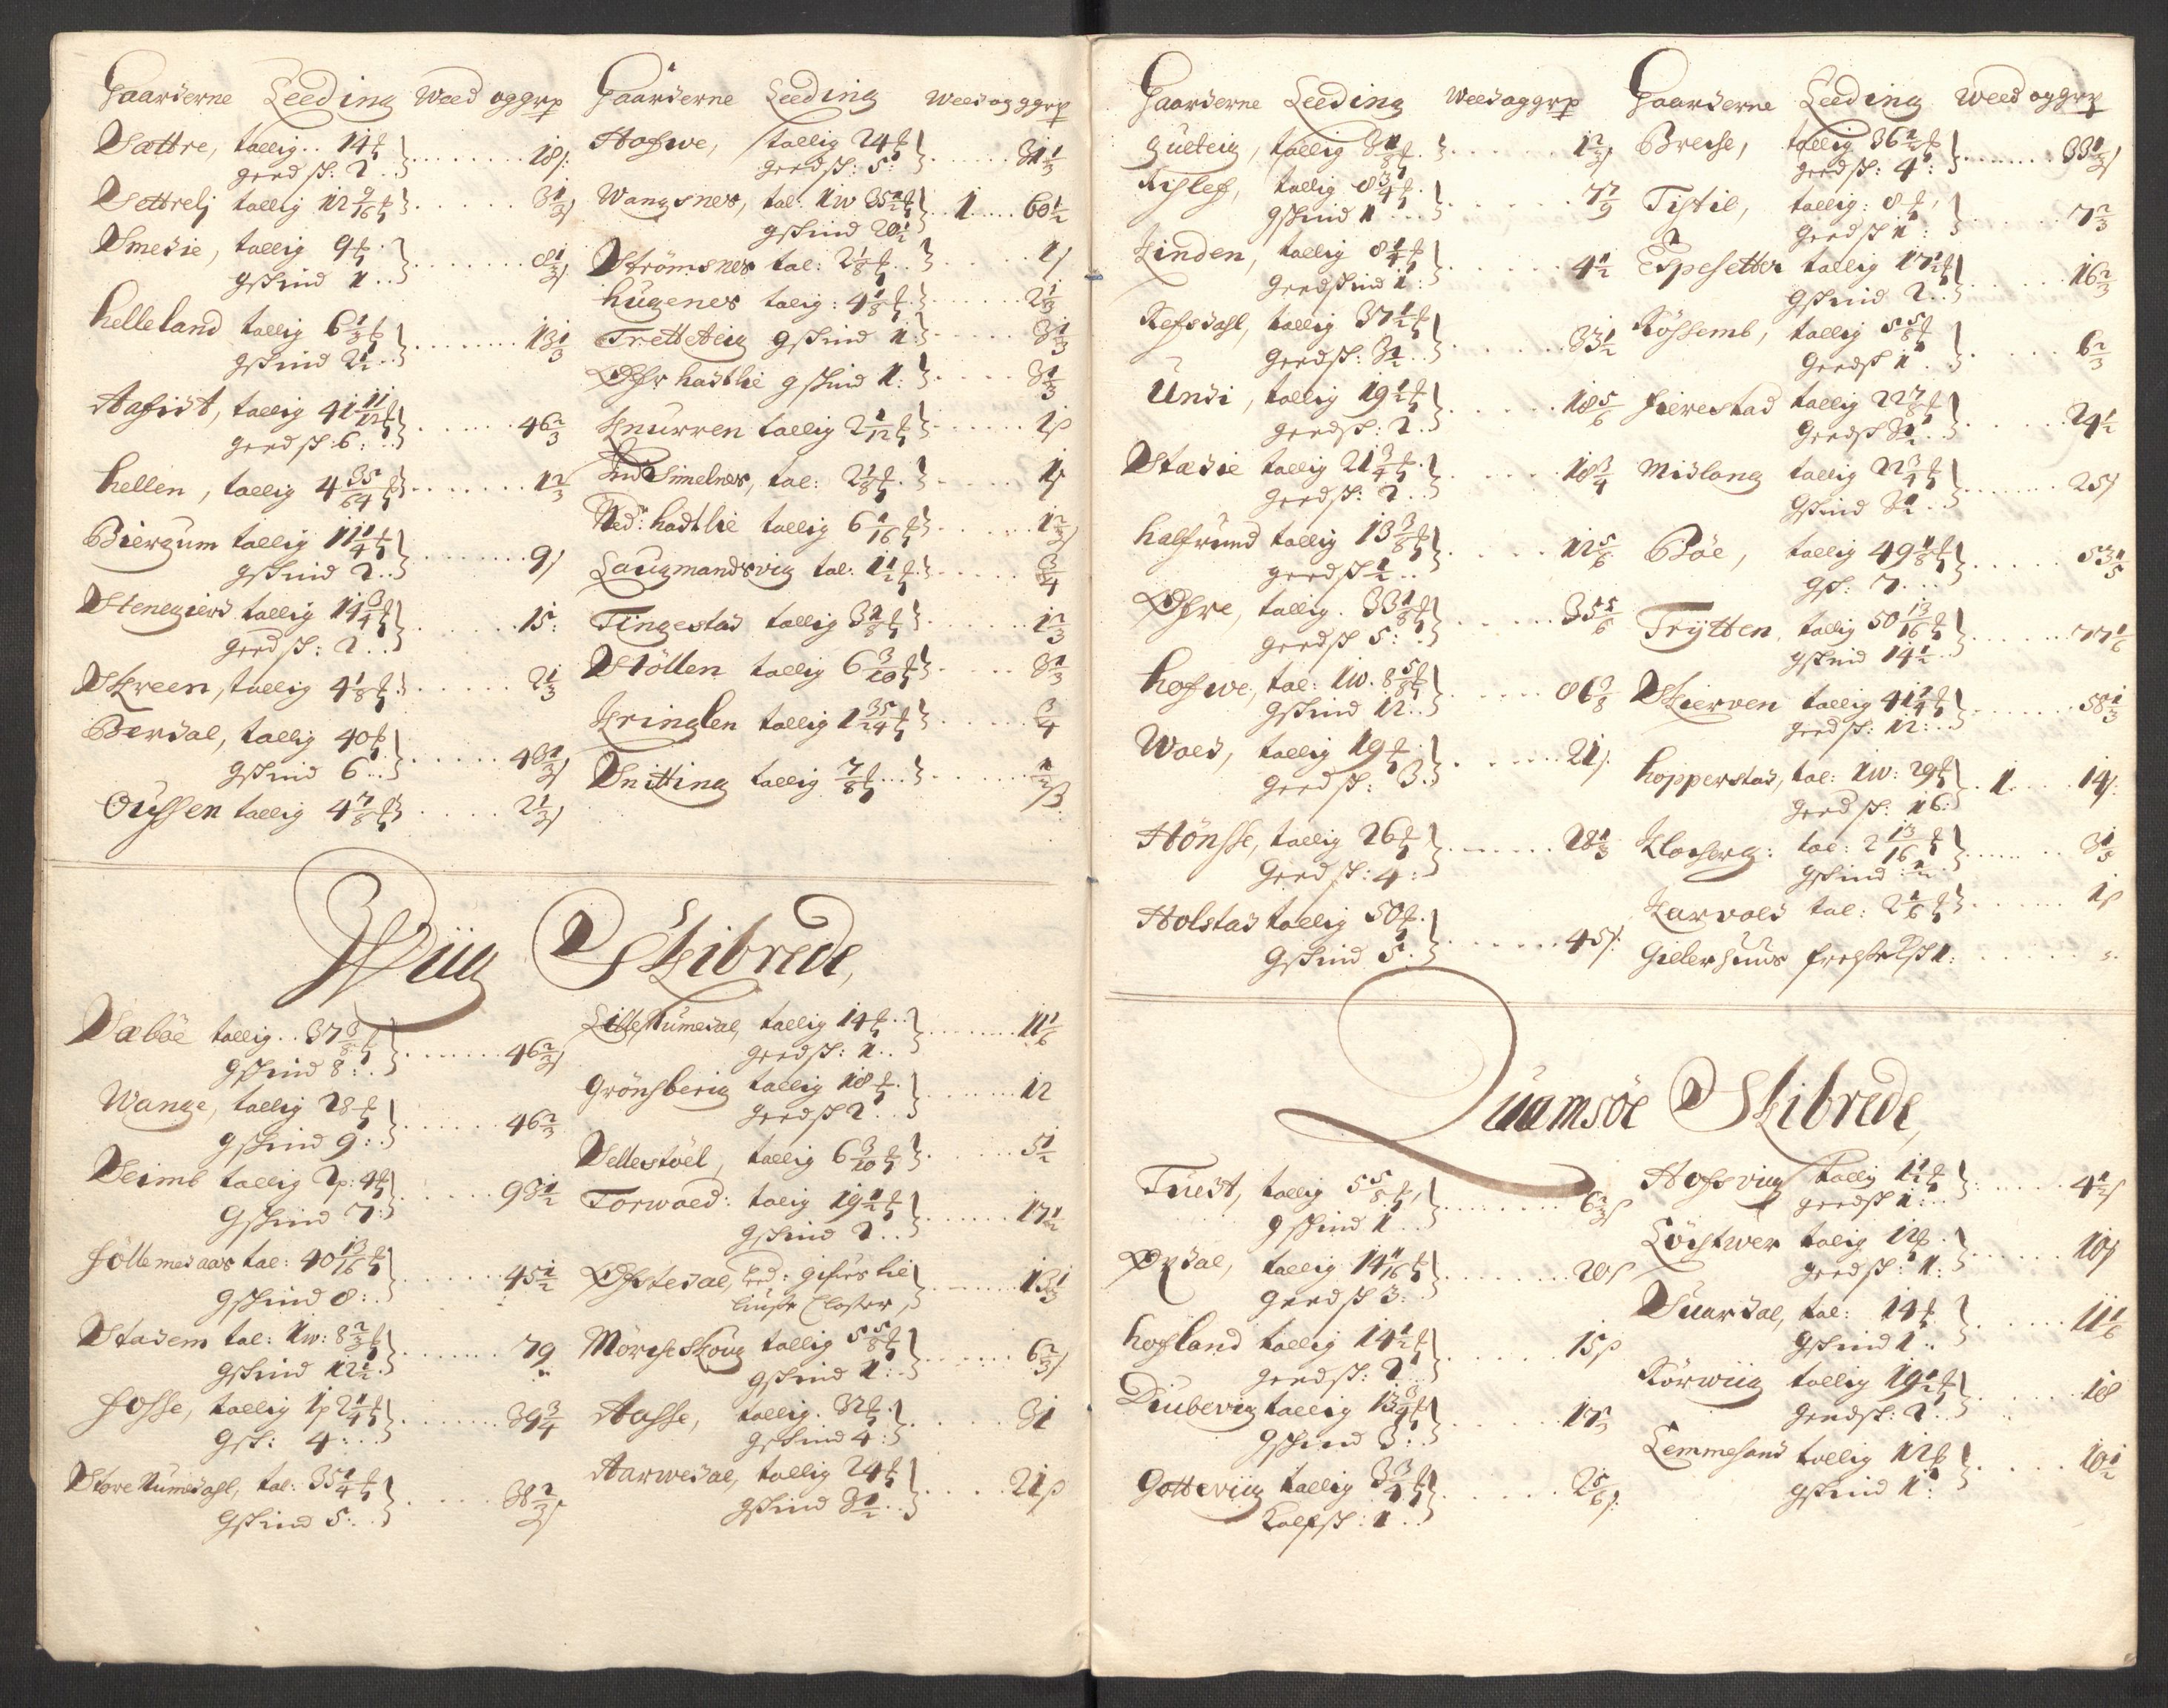 Gaarderne Leeding Weed og grp
Sættre, tallig.. 14 ℔
geed sk: 2 . . 18 s:
Settrelj tallig 12 9/16 ℔ . . 3 1/3 s
Smedie, tallig 9 ℔.
gskind 1 . . 8 1/3 s
Helleland tallig 6 1/3 ℔
gskind 2 1/2 . . 13 1/3
Aafidt, tallig 41 11/12 ℔
geed sk: 6 : . . 46 2/3
Hellen, tallig 4 35/64 ℔ . . 1 2/3
Biergum tallig 11 1/4 ℔
gskind 2 . . 9 s
Stenegierd tallig 14 3/4 ℔
geed sk: 2 . . 15:
Skreen, tallig 4 1/8 ℔ . . 2 1/3
Berdal, tallig 40 ℔
gskind 6 . . 48 1/3 s
Oussen tallig 4 7/8 ℔ . . 2 1/3 s
Gaarderne Leeding Weed og grp
Hofwe, tallig 24 ℔
geed sk: 5 . . 31 1/3
Wangsnes, tal: 1 w 35 1/2 ℔
gskind 20 1/2 . . 1 . . 60 1/2
Strömsnes tal: 2 1/8 ℔ . . 1 s
Hugenes talig: 4 1/8 ℔ . . 2 1/3
Tretteteig gskind 1 . . 3 1/3
Øfr hadtlie gskind 1: . . 3 1/3
Knurren tallig 2 1/12 ℔ . . 1 s
Ind Simelnes, tal: 2 1/8 ℔ . . 1 s
Ned: hadtlie tallig 6 1/16 ℔ . . 1 2/3 s
Laugmandsvig tal: 1 1/2 ℔ . . 3/4
Tingestad tallig 3 1/8 ℔ . . 1 2/3
Stöllen tallig 6 3/20 ℔ . . 3 1/3
Kringlen tallig 1 35/24 ℔ . . 3/4
Snitting tallig 7/8 ℔ . . 1/2 s
Wiig Skibrede,
Sæböe tallig.. 37 3/8 ℔
gskind 8 . . 46 2/3 s
Wange, tallig 28 ℔
gskind 9: . . 46 2/3
Seimb tallig 2 p: 4 ℔
gskind 7: . . 93 1/2
Föllemedaas tal: 40 13/16 ℔
gskind 8: . . 45 1/2
Stadem tal: 1 w: 8 2/3 ℔
gskind 12 1/2 . . 79
Fosse, tallig 1 p 2 1/4 ℔
gsk: 4: . . 39 3/4
Store Kumedahl, tal: 35 1/4 ℔
gskind 5: . . 38 2/3 s
Lille Kumedal, tallig 14 ℔
geed sk: 1 . . 11 1/6
Grönsberig tallig 18 ℔
geed sk 2 . . 12
Sellestöel, tallig 6 3/20 ℔ . . 5 1/2
Torwald: talig 19 1/2 ℔
gskind 2 . . 17 1/2
Øfstedal,
liuse Closter, . . 13 1/3
Mörcheskoug tallig 5 5/8 ℔
gskind 1: . . 6 2/3 s
Aasse, tallig. 32 ℔
gskind 4: . . 31
Aarwedal, tallig 24 ℔
gskind 3 1/2 . . 21 s
Gaarderne Leeding Weed og grp
Gulteig, tallig 3 1/8 ℔ . . 1 2/3 s
Rislef, tallig 8 3/4 ℔
gskind 1 . . 7 7/9
Linden, tallig 8 1/4 ℔
geedskind 1: . . 4 1/2
Refsdahl, tallig 37 1/2 ℔
geed sk: 3 1/2 . . 33 1/2
Undi, tallig 19 1/2 ℔
geed sk: 2 . . 18 5/6
Stædie tallig 21 3/4 ℔
geed sk: 2 . . 18 3/4
Halfrund tallig 13 3/8 ℔
geed sk 1/2 . . 12 5/6
Øfre, tallig. 33 1/8 ℔
geed sk 5: . . 35 5/6
Hofwe, tal: 1 w. 8 5/8 ℔
gskind 12 . . 86 3/8
Wold, tallig 19 ℔
geed sk: 3 . . 21 s.
Hönsse, tallig 26 ℔
geed sk: 4: . . 28 1/3
Holstad tallig 50 ℔
gskind 5 . . 45 s:
Gaarderne Leeding Weed og grp
Breche, tallig 36 1/2 ℔
geed sk: 4: . . 33 1/3 s
Tistil, tallig: 8 ℔
geed sk 1: . . 7 2/3
Espesetter tallig 17 1/2 ℔
gskind 2 . . 16 2/3
Kössemb, tallig 5 5/8 ℔
geed sk 1 . . 6 2/3
Fierestad tallig 22 7/8 ℔
geed sk 3 1/2 . . 24 1/2
Midlang tallig 22 3/4 ℔
gskind 3 1/2 . . 25 s
Böe, tallig 49 1/8 ℔
gsk: 7 . . 53 1/3
Trytten, tallig 50 13/16 ℔
gskind 14 1/2 . . 77 1/6
Skierven tallig 41 1/4 ℔
geed sk: 12: . . 58 1/3
Hopperstad, tal: 1 w: 29 ℔
geed sk: 16: . . 1 . . 14 s:
Klocherg: tal: 2 13/16 ℔
gskind: 1/2 . . 3 1/5
Larvold tal: 2 1/6 ℔ . . 1 s
Gielerhuus 1:
Quamsöe Skibrede,
Tuedt, tallig 5 5/8 ℔
gskind 1 . . 6 2/3 s
Øxdal, tallig 14 1/16 ℔
geed sk 3: . . 20 s
Hofland tallig 14 1/2 ℔
geed sk: 2 . . 15 s
Diubevig tallig 13 3/4 ℔
gskind 3: . . 17 2/3
Gotteviig tallig 3 3/4 ℔
Kalfsk: 1 . . 2 5/6 s:
Hofsvig tallig 1 1/2 ℔
geed sk 1: . . 4 1/2 s
Löchtwer talig 12 ℔
geed sk: 1: . . 10 s
Suardal, tal: 14 ℔
gskind 1 . . 11 1/6
Körwiig tallig 19 1/2 ℔
geed sk: 2 . . 18
Lemmesand tallig 12 ℔
gskind 1: . . 10 1/2